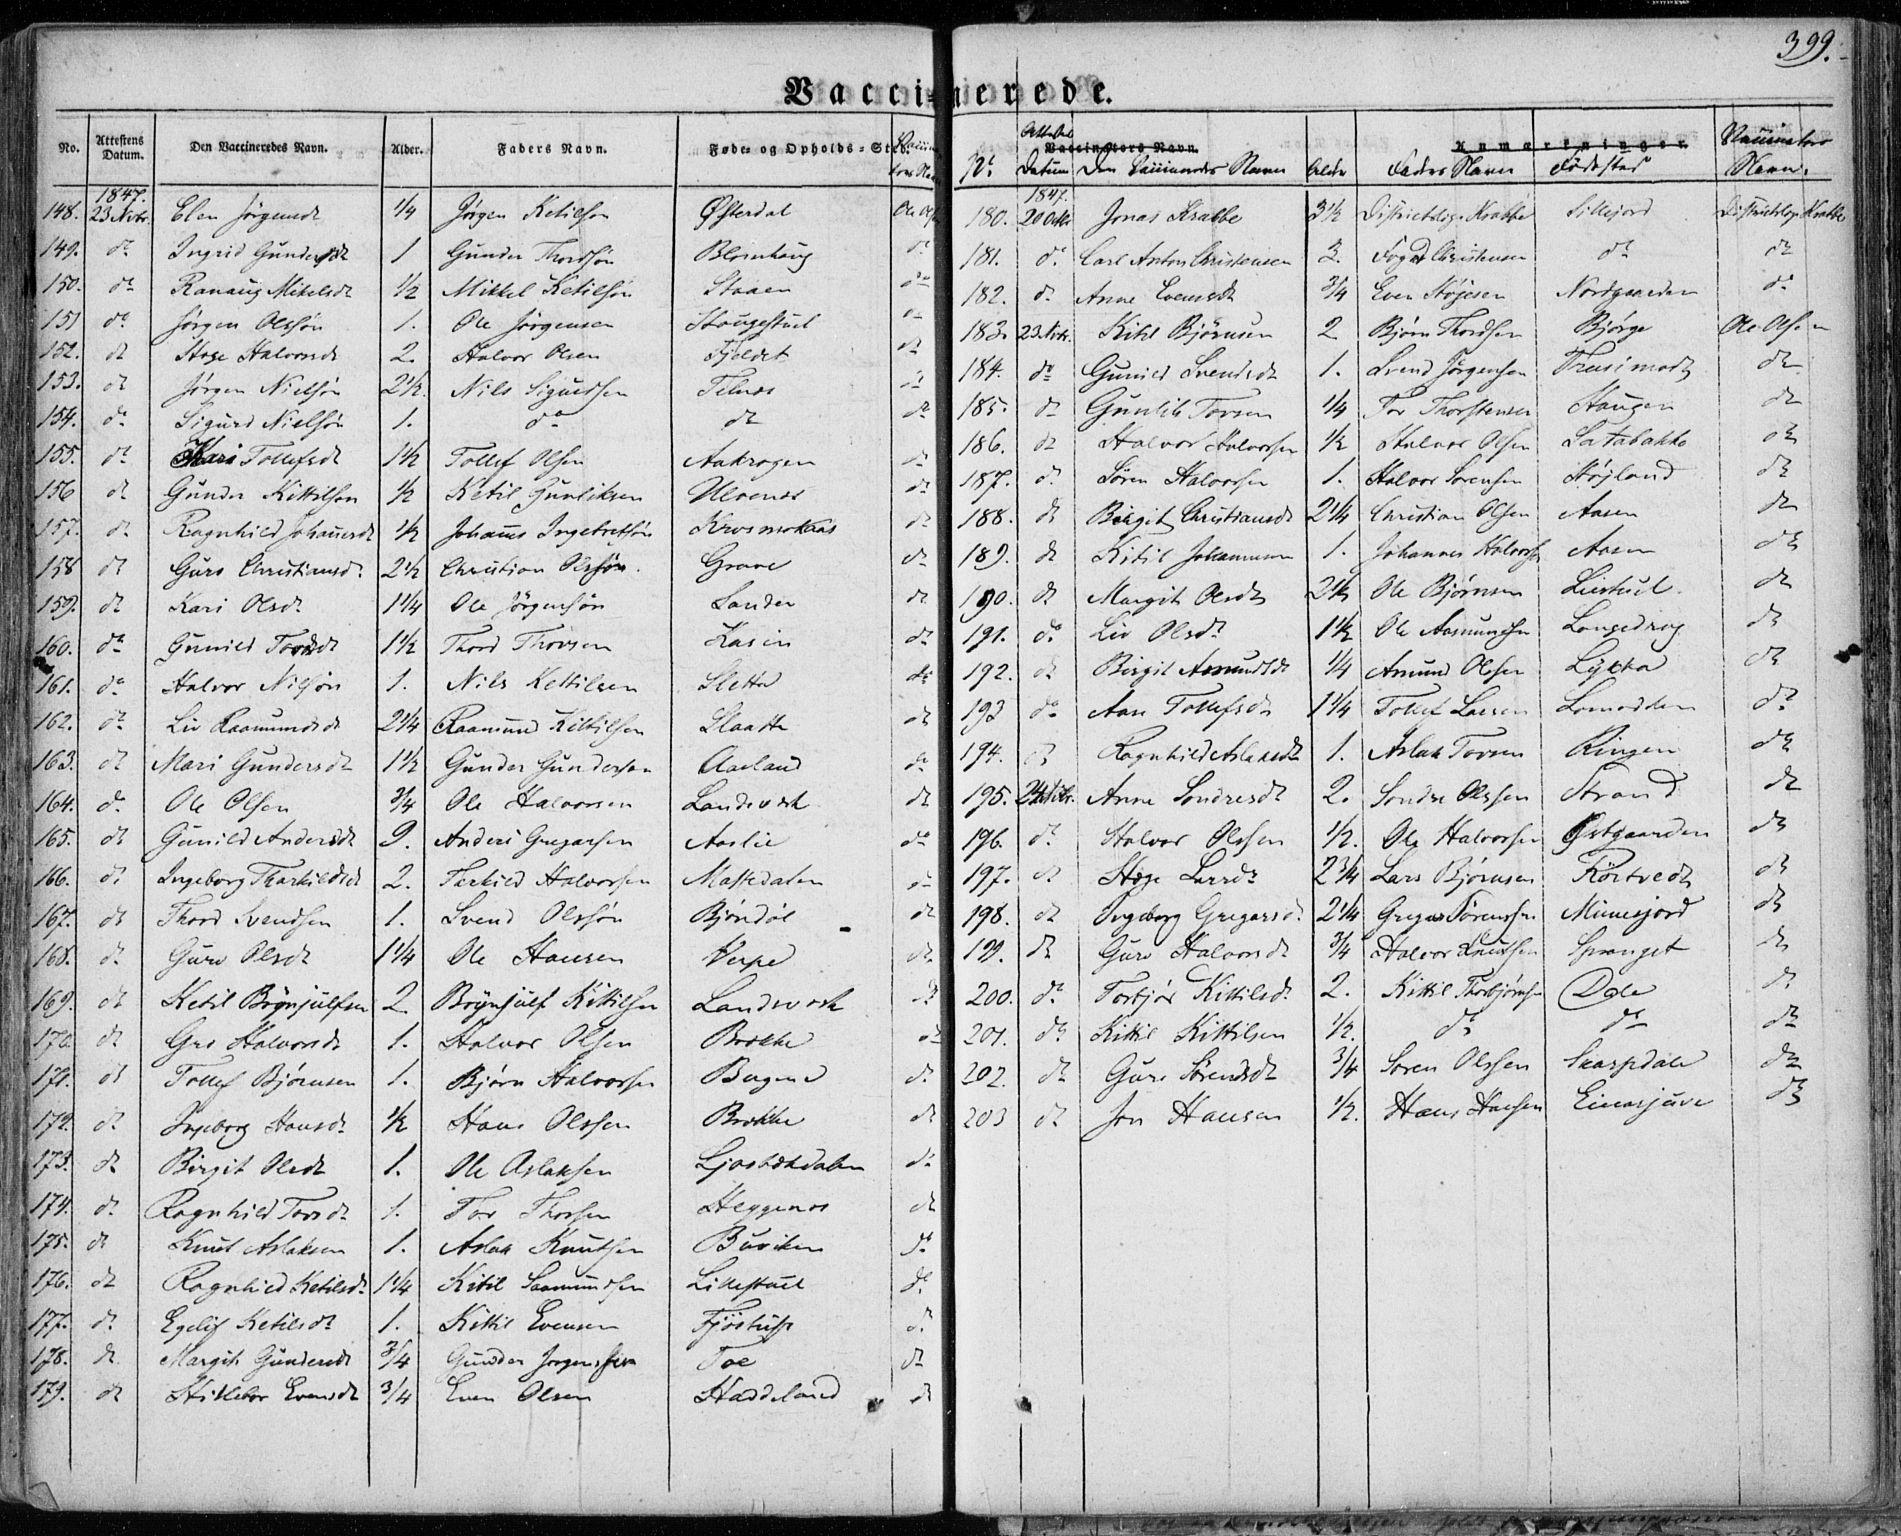 399.
Vaccinerede.
No. Attestens Datum. Den Vaccineredes Navn. Alder. Faders Navn. Føde- og Opholds-Sted.
1847.
148. 23 Nvbr. Elen Jörgensdt 1/4 Jörgen Ketilsön Østerdal Ole Ols
149. do Ingrid Gundersdt 1 Gunder Thordsön Blomhaug do
150. do Ranaug Mikelsdt 1/2 Mikkel Ketilsön Staaen do
151 do Jörgen Olssön 1. Ole Jörgensen Haugestuel do
152. do Hæge Halvorsdt 2. Halvor Olsen Fjeldet do
153. do Jörgen Nielsön 2 1/2. Nils Sigurdsen Telnes do
154. do Sigurd Nielsön 1. do do do
155. do Kari Tollefsdt 1 1/2 Tollef Olsen Aakrogen do
156 do Gunder Kittilsen 1/2 Ketil Gunliksen Ulvenes do
157. do Ragnhild Johannesdt 1/2 Johannes Ingebretsön Krosmokaas do
158 do Guro Christiansdt. 2 1/2 Christian Olssön. Grave do
159. do Kari Olsdt 1 1/4 Ole Jörgensön Sanden do
160. do Gunild Tordsdt 1 1/2 Thord Thorsen Kasin do
161. do Halvor Nilsön 1. Nils Kettilsen Sletta do
162. do Liv Raamundsdt 2 1/4 Raamund Kittilsen Slaatta do
163. do Mari Gundersdt 1 1/2 Gunder Gundersen Aaeland do
164. do Ole Olsen 3/4 Ole Halvorsen Landsverk do
165. do Gunild Andersdt 9. Anders Gregarsen Aaslie do
166. do Ingeborg Tharkildsdt 2. Terkild Halvorsen Mastedalen do
167. do Thord Svendsen 1. Svend Olssön Bjöndöl do
168. do Guro Olsdt 1 1/4 Ole Hansen Verpe do
169. do Ketil Brynjulfsen 2. Brynjulf Kittilsen Landsverk do
170. do Gro Halvorsdt 1. Halvor Olsen Brokke do
171. do Tollef Bjørnsen 1. Bjørn Halvorsen Bugene do
172. do Ingeborg Hansdt 1/2 Hans Olssen Brokke do
173. do Birgit Olsdt 1. Ole Aslaksen Ljosbækdalen do
174. do Ragnhild Torsdt 1. Tor Thorsen Heggenes do
175. do Knut Aslaksen 1. Aslak Knutsen Buviken do
176. do Ragnhild Ketilsdt 1 1/4 Kitil Saamundsen Lillestuel do
177. do Egelif Ketilsdt 1. Kittil Evensen Fjöstuft do
178. do Margit Gundersdt 3/4 Gunder Jorgensen Toe do
179. do Hilleber Evensdt 3/4 Even Olsen Haddeland do
No Attestens Datum Den Vaccineredes Navn Alder Faders Navn Födestad Vaccinators Navn.
Vaccinators Navn. Anmærkninger.
1847.
180. 20 Octbr Jonas Krabbe 3 1/2 Districtslæge Krabbe Sillejord Districtslæge Krabbe
181. do Carl Anton Christensen 2. Foged Christensen do do
182. do Anne Evensdt 3/4 Even Høgesen Nordgaarden do
183. 23 Nvbr. Kitil Bjørnsen 2 Bjørn Thordsen Bjørge Ole Olsen
184. do Gunild Svendsdt 1. Svend Jörgensen Trusimodt do
185. do Gunlik Torsen 1/4 Tor Thorstensen Haugen do
186. do Halvor Halvorsen 1/2 Halvor Olsen Satabakke do
187. do Sören Halvorsen 1. Halvor Sorensen Højland do
188. do Birgit Christiansdt 2 1/4 Christian Olsen Aasen do
189. do Kitil Johannesen 1. Johannes Halvorsen Aasen do
190. do Margit Olsdt 2 1/2 Ole Bjørnsen Liestuel. do
191. do Liv Olsdt 1 1/2 Ole Aasmundsen Langedrag do
192. do Birgit Asmundsdt 1/4 Asmund Olssen Lykka do
193 do Aase Tollefsdt 1 1/4 Tollef Larsen Lomodden do
194. do Ragnhild Aslaksdt 1. Aslak Torsen Ringen do
195. 24 Nvbr. Anne Sondresdt 2. Sondre Olssen Strand do
196. do Halvor Olssen 1/2. Ole Halvorsen Østgaarden do
197. do Hæge Larsdt 2 3/4 Lars Bjørnsen Körtvedt do
198. do Ingeborg Gregarsdt 2 1/4 Gregar Sörensen Minnesjord do
199. do Guro Halvorsdt 3/4 Halvor Knutsen Spranget do
200. do Torbjör Kittilsdt. 2. Kittil Thorbjörnsen Dale do
201. do Kittil Kittilsen 1/2. do do do
202. do Guro Sörensdt 3/4 Soren Olssen Skarpdale do
203 do Jon Hansen 1/2. Hans Hansen Einarsjuve do